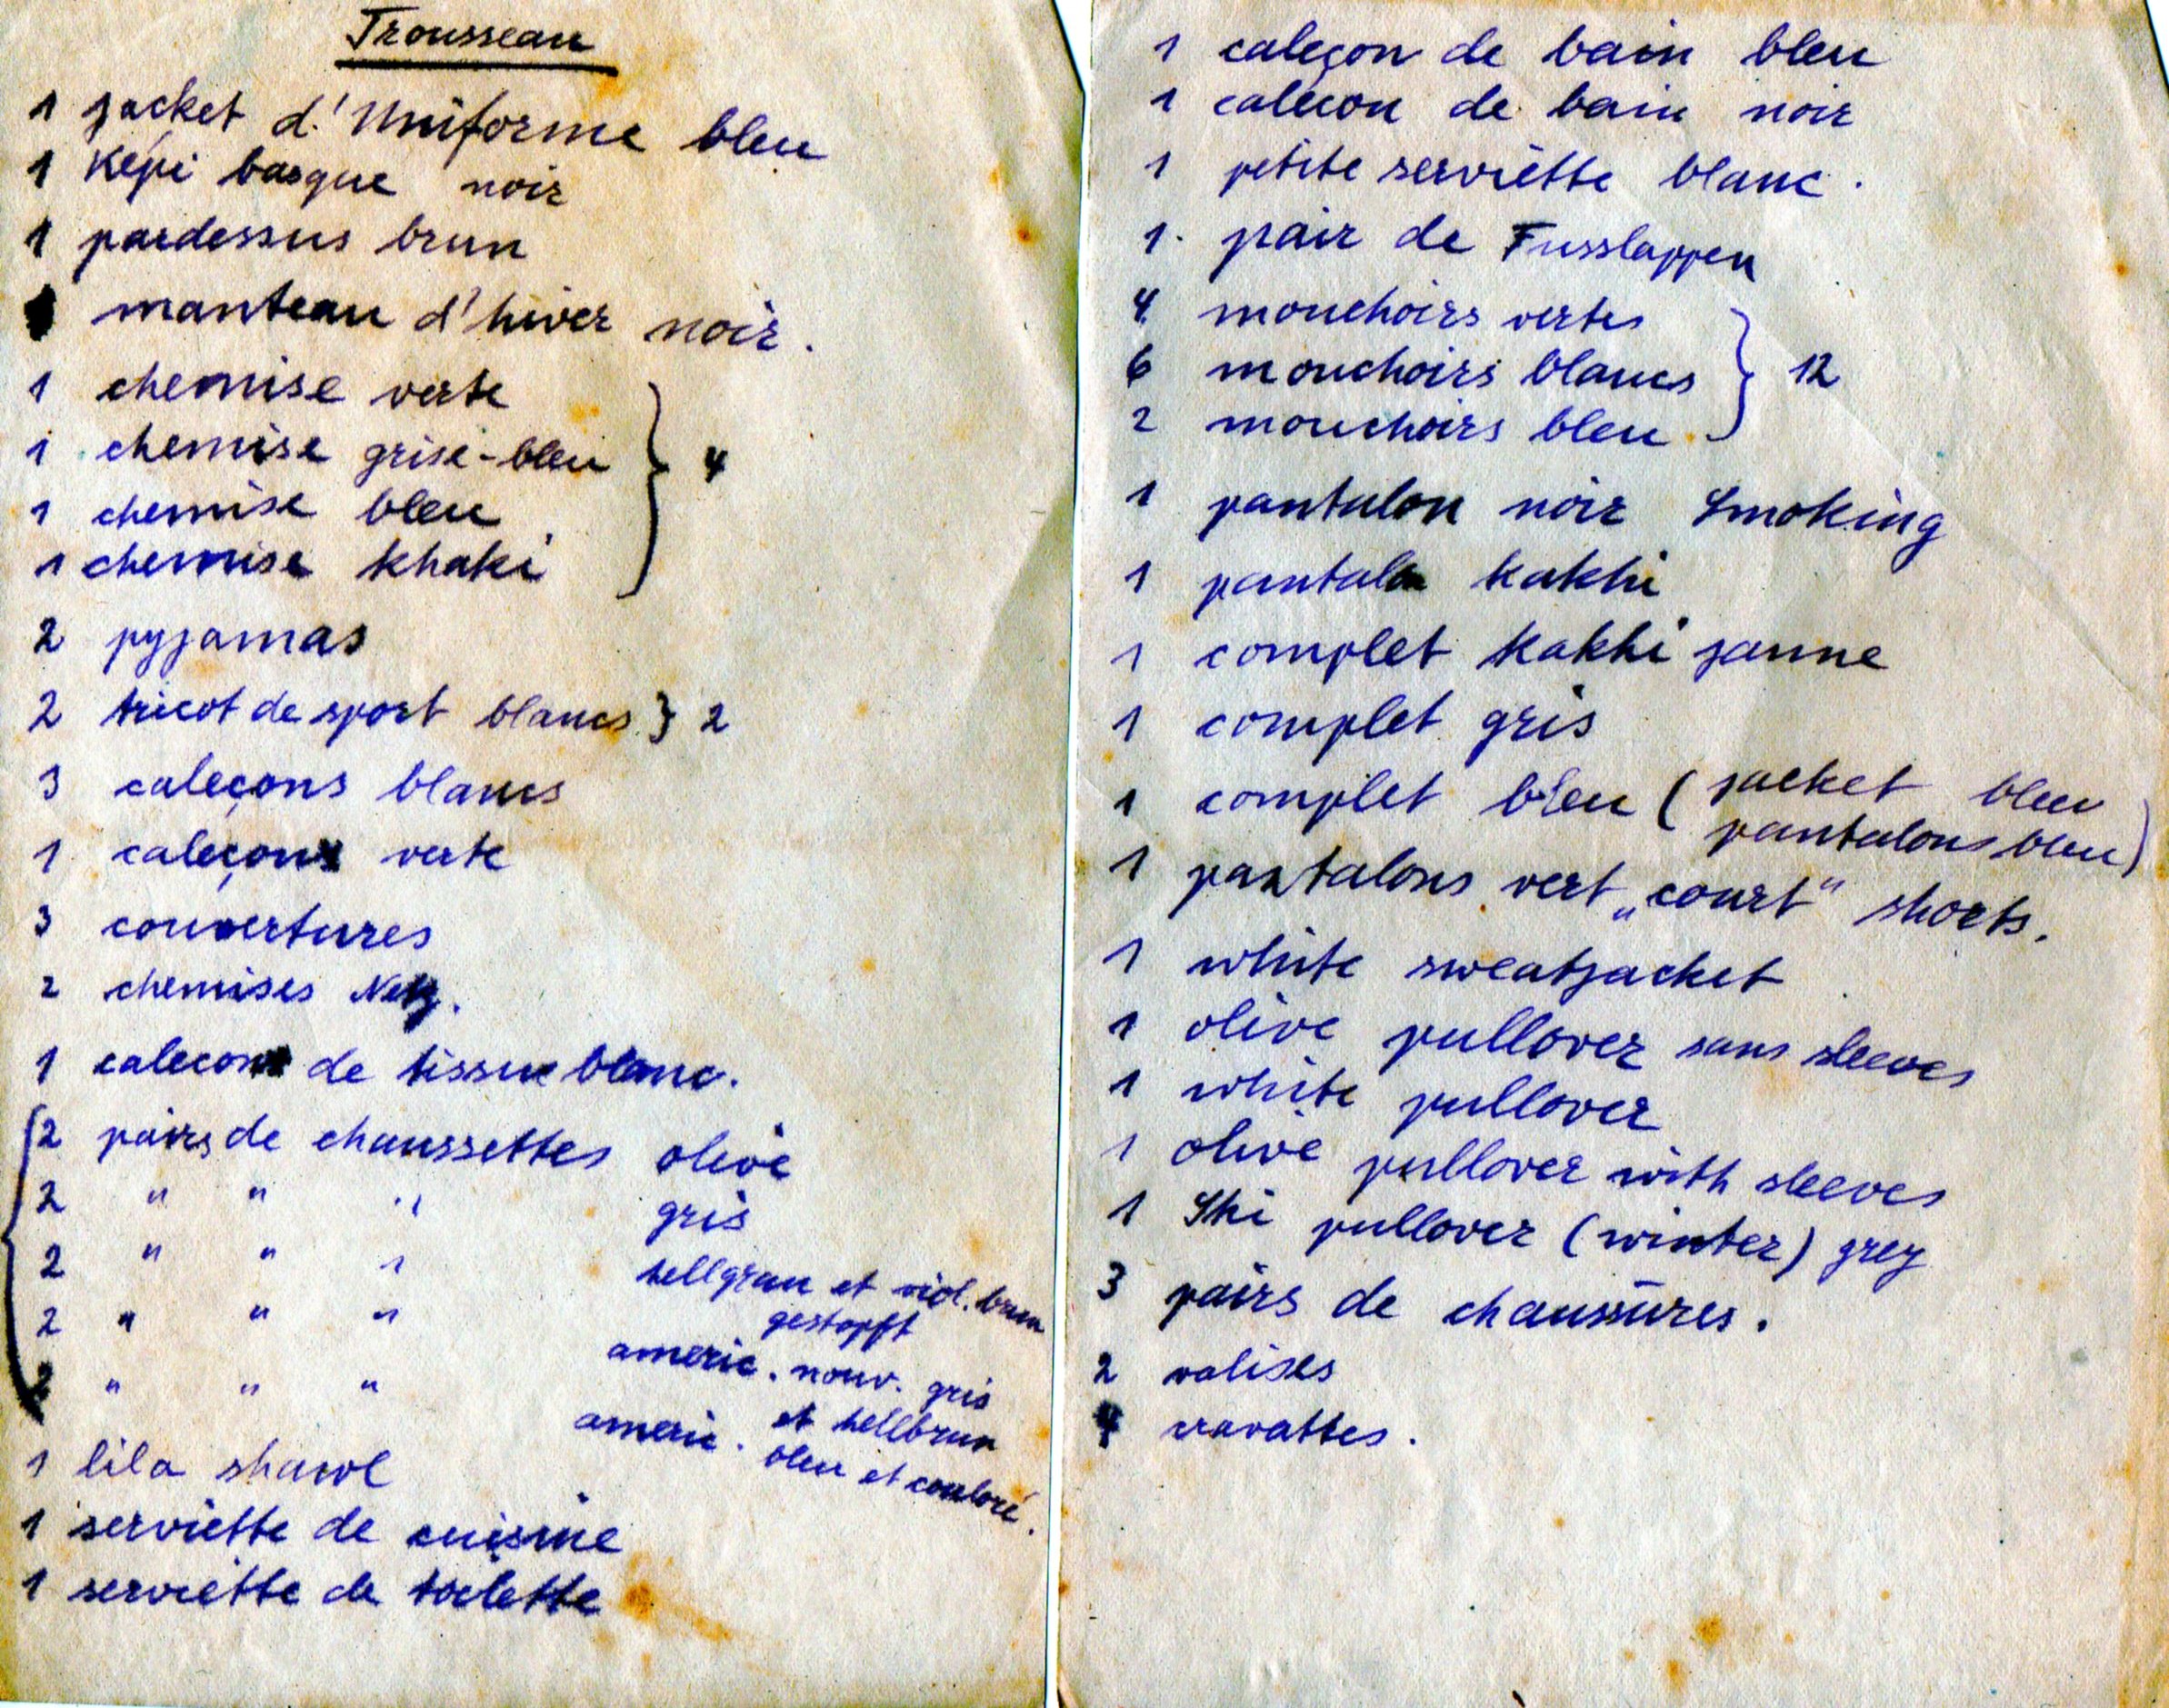 Trousseau
1 jacket d'Uniforme bleu
1 Képi basque noir
1 pardessus brun
1 manteau d'hiver noir.
1 chemise verte
1 chemise grise-bleu } 4
1 chemise bleu
1 chemise khaki
2 pyjamas
2 tricot de sport blancs } 2
3 caleçons blancs
1 caleçon verte
3 couvertures
2 chemises Netz.
1 calecon de tissue blanc.
2 pairs de chaussettes olive
2 " " " gris
2 " " " hellgrau et viol. braun
gestopft
2 " " " americ. nouv. gris
et hellbraun
2 " " " americ. bleu et couloré.
1 lila shawl
1 serviette de cuisine
1 serviette de toilette
1 caleçon de bain bleu
1 calecon de bain noir
1 petite serviette blanc.
1. pair de Fusslappen
4 mouchoirs vertes
6 mouchoirs blancs } 12
2 mouchoirs bleu
1 pantalon noir Smoking
1 pantalon kakhi
1 complet kakhi jaune
1 complet gris
1 complet bleu ( jacket bleu
pantalons bleu )
1 pantalons vert „court" shorts.
1 white sweatjacket
1 olive pullover sans sleeves
1 white pullover
1 olive pullover with sleeves
1 Ski pullover (winter) grey
3 pairs de chaussures.
2 valises
4 cravattes.